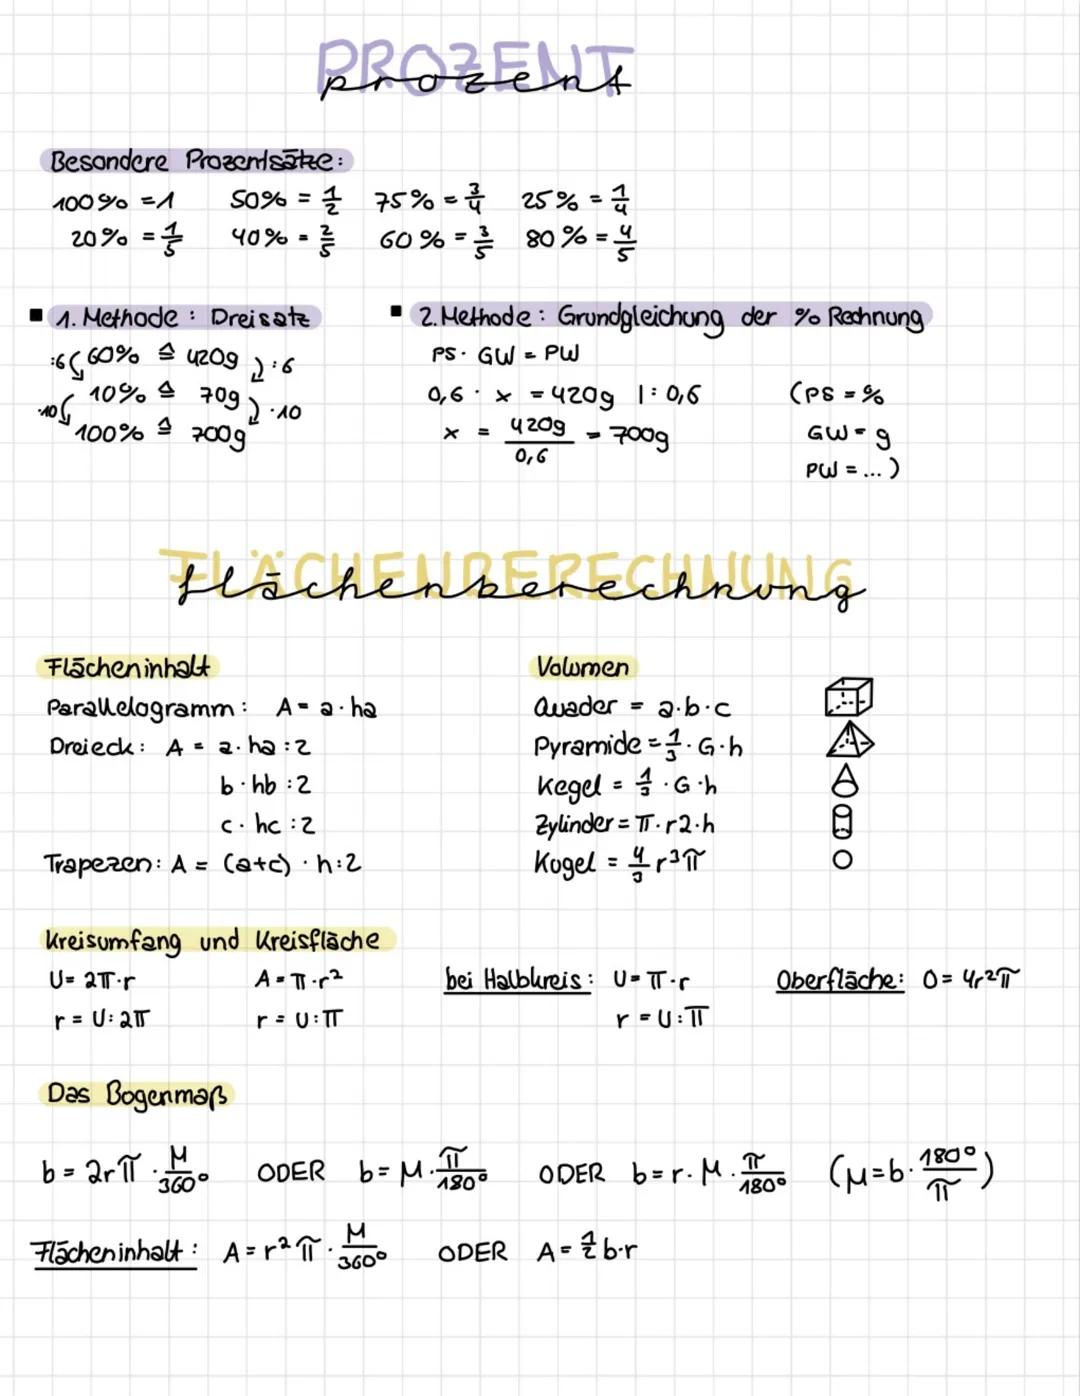 PROZENT
prozent
Besondere Prozentsätze:
100% = 1 50% = 1/2 75% = 3/4 25% = 1/4
20% = 1/5 40% = 2/5 60% = 3/5 80% = 4/5
▪ 1. Methode: Dreisatz
:6 60% ≙ 420g :6
10% ≙ 70g
·10 100% ≙ 700g ·10
▪ 2. Methode: Grundgleichung der % Rechnung
PS · GW = PW
0,6 · x = 420g |: 0,6
x = 420g/0,6 = 700g
(PS = %
GW = g
PW = ...)
FLÄCHENBERECHNUNG
flächenberechnung
Flächeninhalt
Parallelogramm: A = a · ha
Dreieck: A = a · ha : 2
b · hb : 2
c · hc : 2
Trapezen: A = (a+c) · h:2
Volumen
Quader = a·b·c
Pyramide = 1/3 · G·h
Kegel = 1/3 · G·h
Zylinder = π·r2·h
Kugel = 4/3 r³π
Kreisumfang und Kreisfläche
U = 2π·r A = π·r² bei Halbkreis: U = π·r Oberfläche: O = 4r²π
r = U:2π r = U:π r = U:π
Das Bogenmaß
b = 2rπ · μ/360° ODER b = μ · π/180° ODER b = r · μ · π/180° (μ = b · 180°/π)
Flächeninhalt: A = r²π · μ/360° ODER A = 1/2 b·r